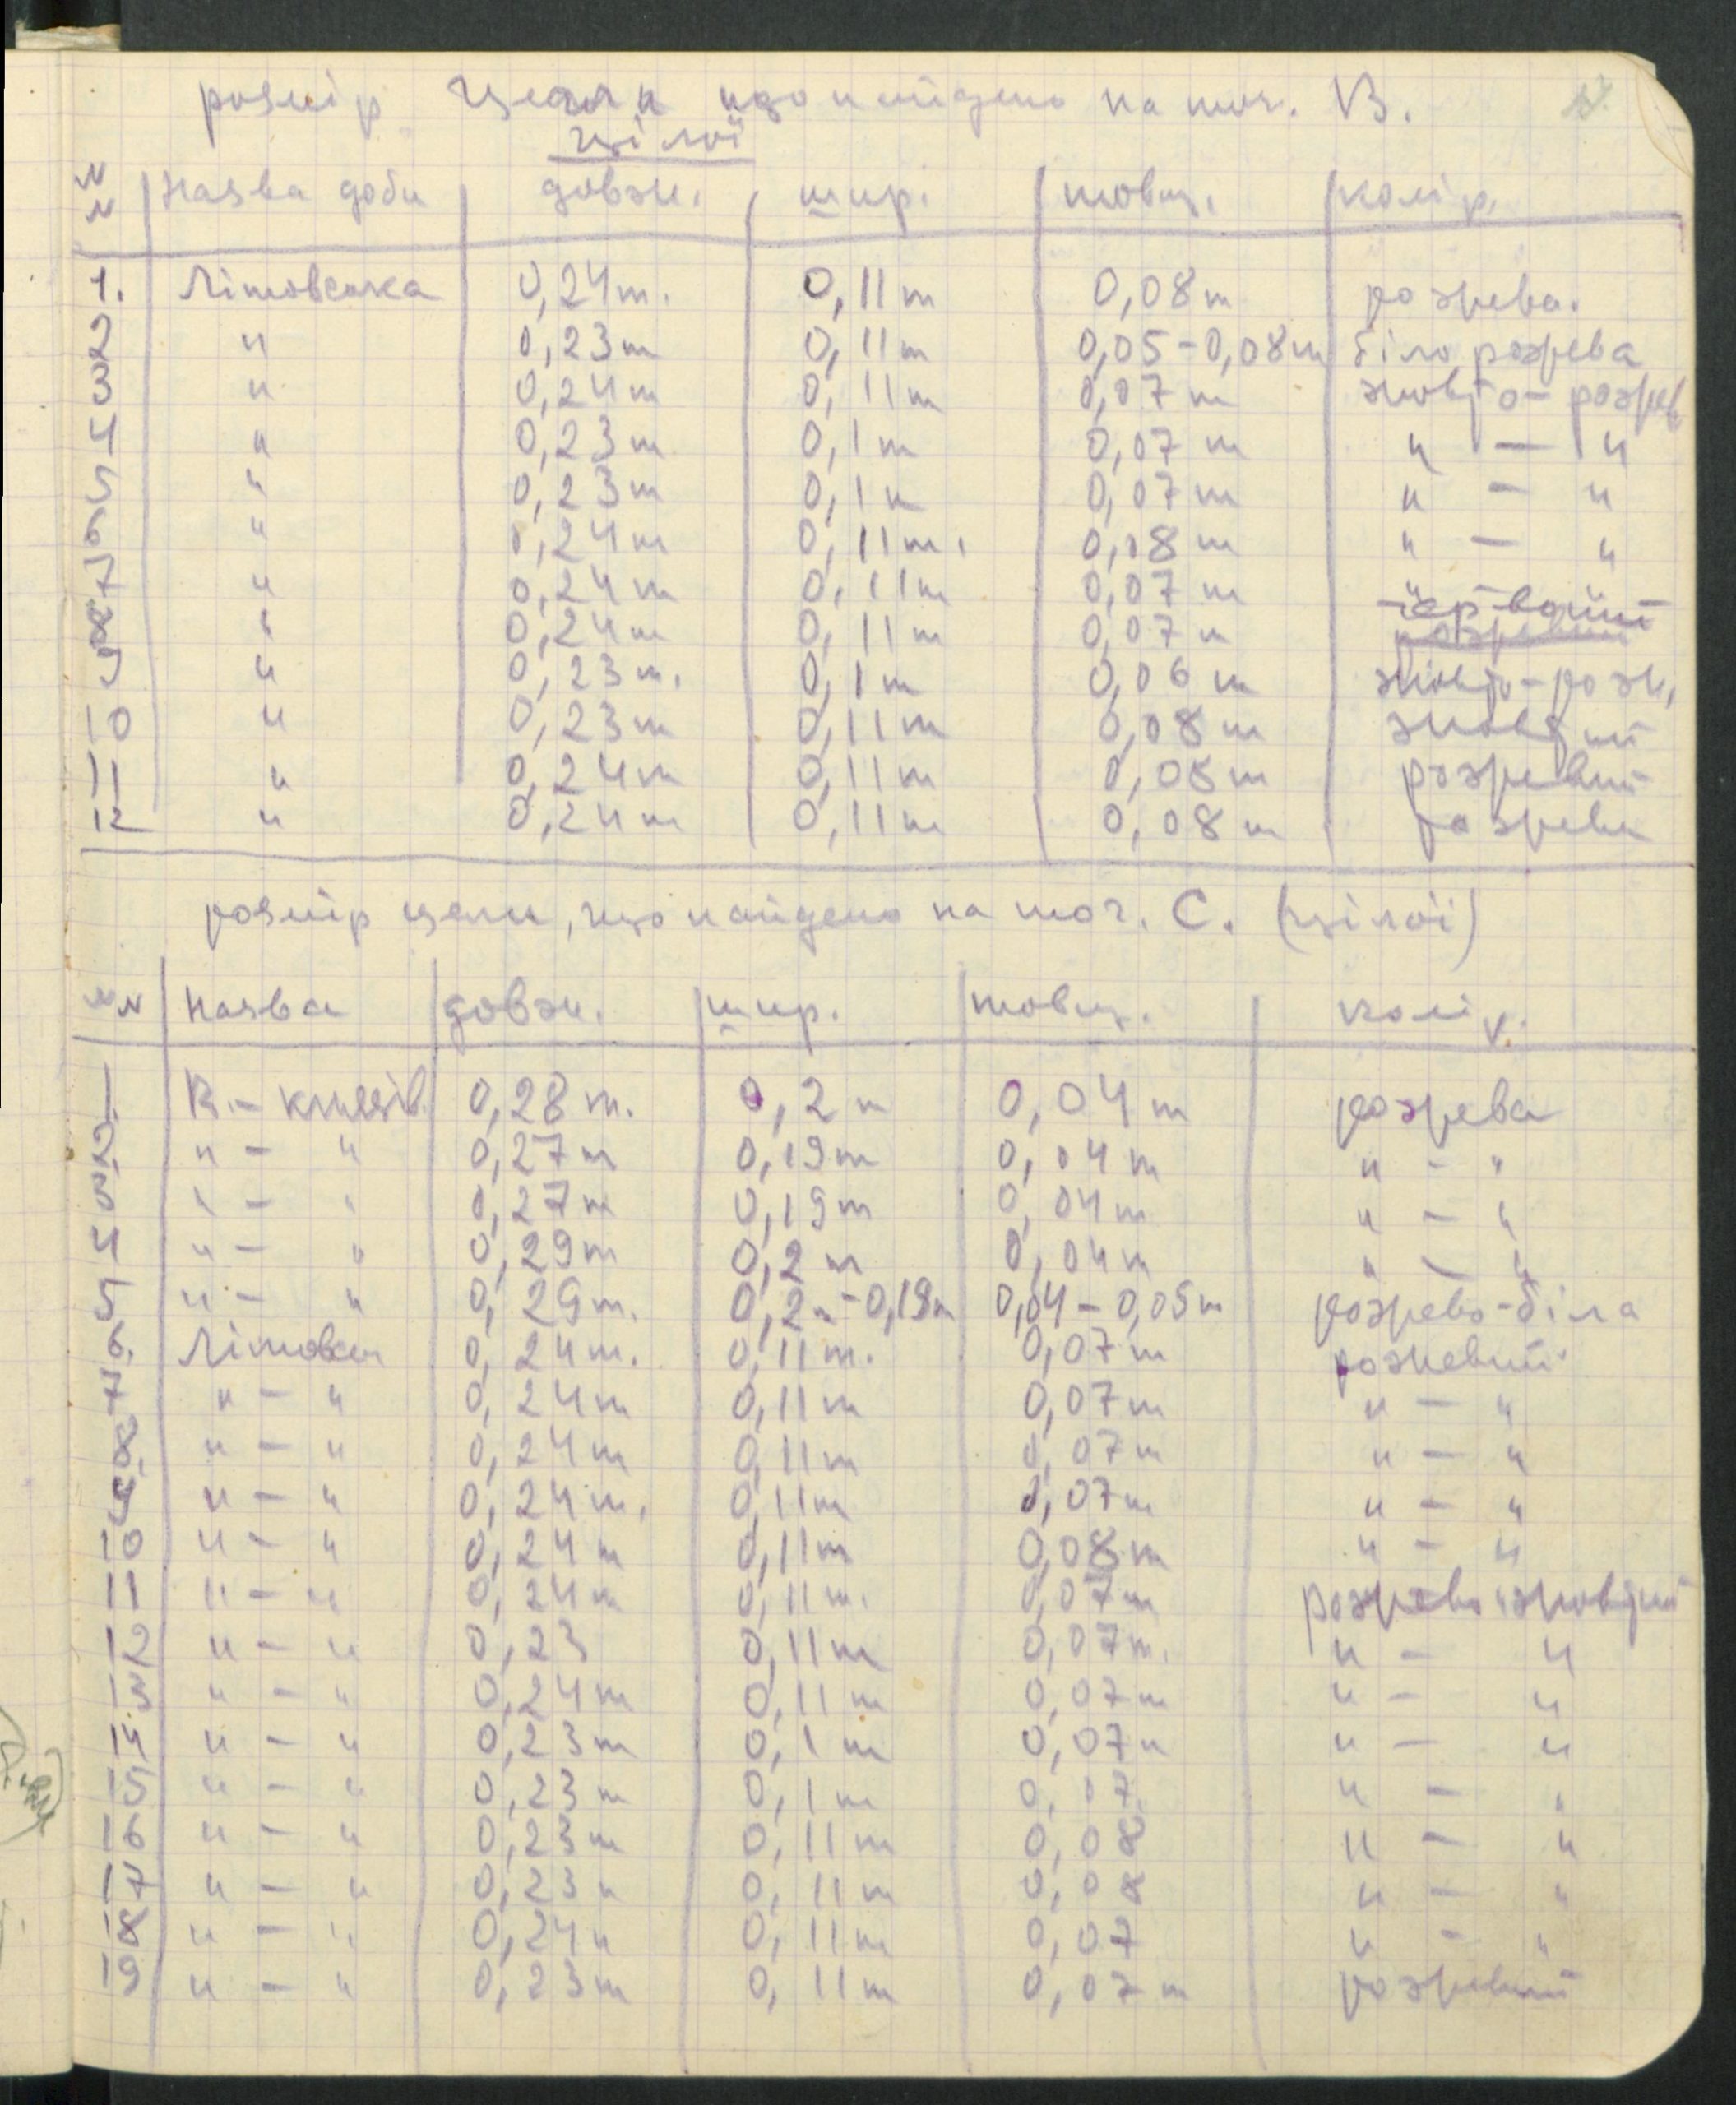 розмір цегли що найдено на точ. В.
цілої
№№ Назва доби довж. шир. товщ. колір.
1. Літовська 0,24 m. 0,11 m 0,08 m рожева.
2 " 0,23 m 0,11 m 0,05-0,08 m біло рожева
3 " 0,24 m 0,11 m 0,07 m жовто-рожев
4 " 0,23 m 0,1 m 0,07 m " — "
5 " 0,23 m 0,1 m 0,07 m " — "
6 " 0,24 m 0,11 m. 0,08 m " — "
7 " 0,24 m 0,11 m 0,07 m "
8 " 0,24 m 0,11 m 0,07 m
9 " 0,23 m. 0,1 m 0,06 m жовто-рож.
10 " 0,23 m 0,11 m 0,08 m жовтий
11 " 0,24 m 0,11 m 0,08 m рожевий
12 " 0,24 m 0,11 m 0,08 m рожева
розмір цегли, що найдено на точ. С. (цілої)
№№ назва довж. шир. товщ. колір.
1 К.-князів. 0,28 m. 0,2 m 0,04 m рожева
2 " — " 0,27 m 0,19 m 0,04 m " — "
3 " — " 0,27 m 0,19 m 0,04 m " — "
4 " — " 0,29 m 0,2 m 0,04 m " — "
5 " — " 0,29 m. 0,2 m-0,19 m 0,04-0,05 m рожево-біла
6 Літовсь 0,24 m. 0,11 m. 0,07 m рожевий
7 " — " 0,24 m 0,11 m 0,07 m " — "
8 " — " 0,24 m 0,11 m 0,07 m " — "
9 " — " 0,24 m. 0,11 m 0,07 m " — "
10 " — " 0,24 m 0,11 m 0,08 m " — "
11 " — " 0,24 m 0,11 m. 0,07 m рожево жовтий
12 " — " 0,23 0,11 m 0,07 m. " — "
13 " — " 0,24 m 0,11 m 0,07 m " — "
14 " — " 0,23 m 0,1 m 0,07 m " — "
15 " — " 0,23 m 0,1 m 0,07 " — "
16 " — " 0,23 m 0,11 m 0,08 " — "
17 " — " 0,23 m 0,11 m 0,08 " — "
18 " — " 0,24 m 0,11 m 0,07 " — "
19 " — " 0,23 m 0,11 m 0,07 m рожевий